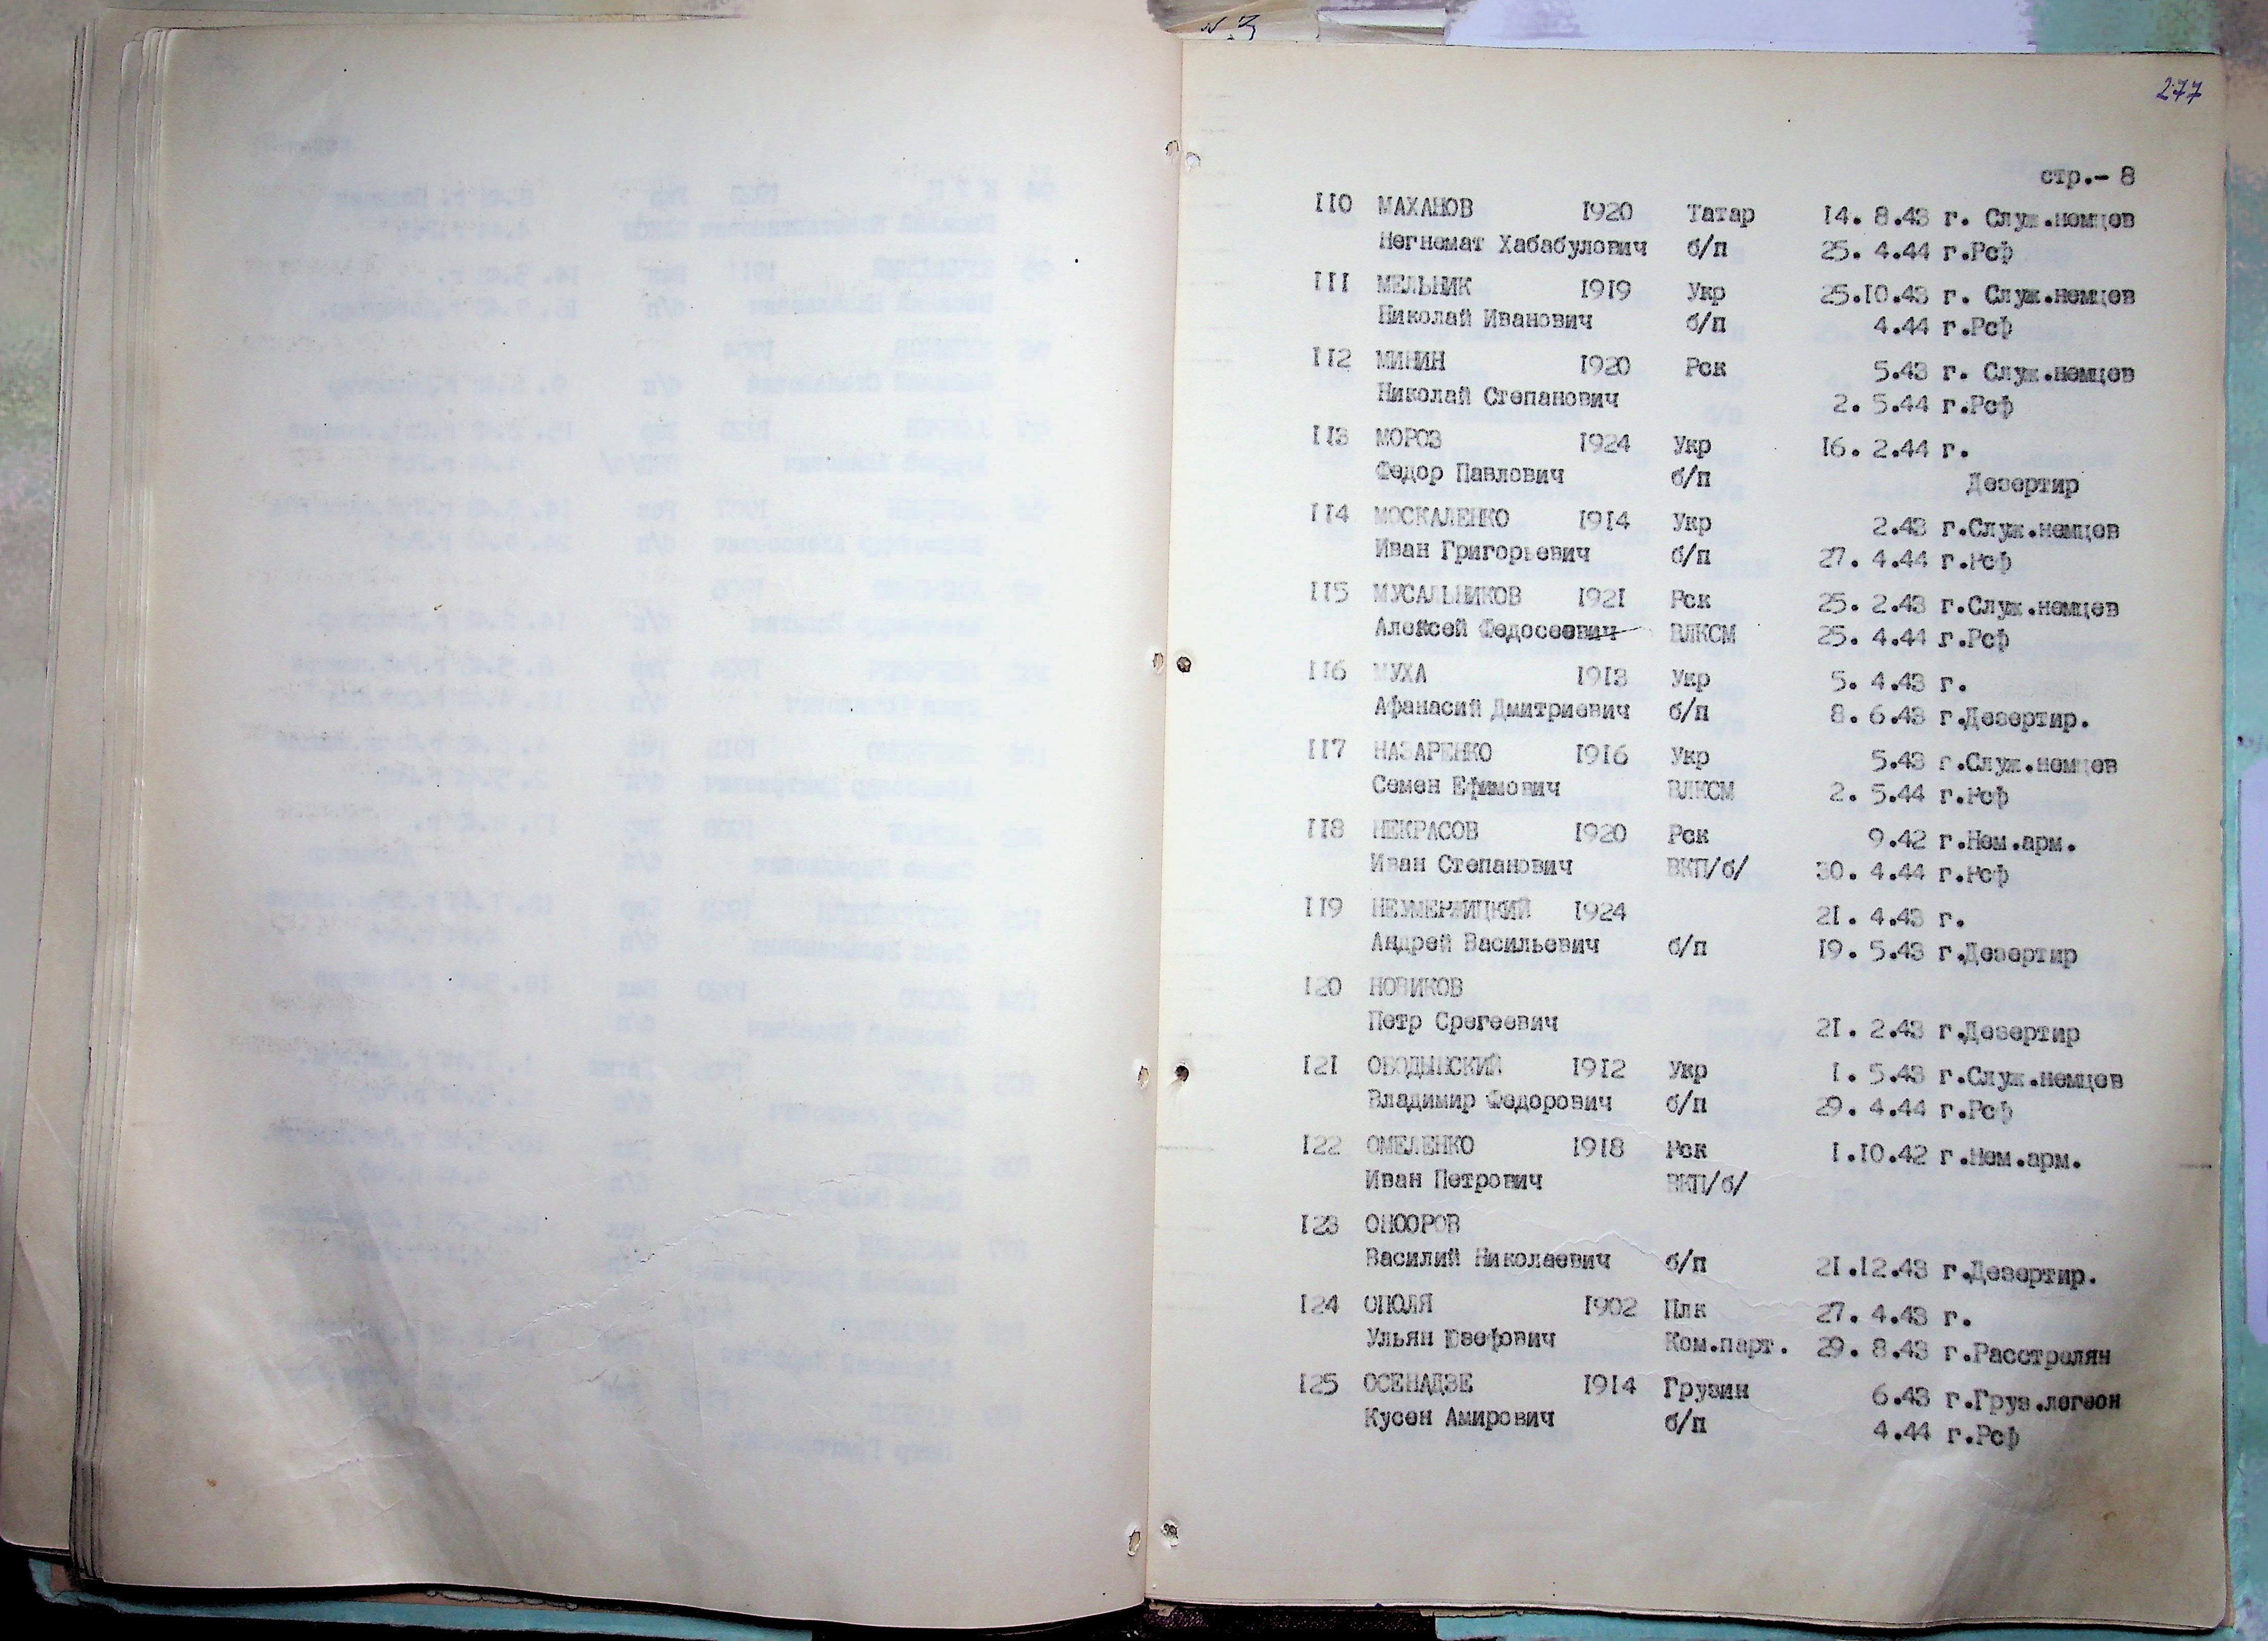 277
стр.- 8
110 МАХАНОВ 1920 Татар 14. 8.43 г. Служ.немцев
Негнемат Хабабулович б/п 25. 4.44 г.Рсф
111 МЕЛЬНИК 1919 Укр 25.10.43 г. Служ.немцев
Николай Иванович б/п 4.44 г.Рсф
112 МИНИН 1920 Рск 5.43 г. Служ.немцев
Николай Степанович 2. 5.44 г.Рсф
113 МОРОЗ 1924 Укр 16. 2.44 г.
Федор Павлович б/п Дезертир
114 МОСКАЛЕНКО 1914 Укр 2.43 г.Служ.немцев
Иван Григорьевич б/п 27. 4.44 г.Рсф
115 МУСАЛЬНИКОВ 1921 Рск 25. 2.43 г.Служ.немцев
Алексей Федосеевич ВЛКСМ 25. 4.44 г.Рсф
116 МУХА 1913 Укр 5. 4.43 г.
Афанасий Дмитриевич б/п 8. 6.43 г.Дезертир.
117 НАЗАРЕНКО 1916 Укр 5.43 г.Служ.немцев
Семен Ефимович ВЛКСМ 2. 5.44 г.Рсф
118 НЕКРАСОВ 1920 Рск 9.42 г.Нем.арм.
Иван Степанович ВКП/б/ 30. 4.44 г.Рсф
119 НЕУМЕРЖИЦКИЙ 1924 21. 4.43 г.
Андрей Васильевич б/п 19. 5.43 г.Дезертир
120 НОВИКОВ
Петр Срегеевич 21. 2.43 г.Дезертир
121 ОБОДЫНСКИЙ 1912 Укр 1. 5.43 г.Служ.немцев
Владимир Федорович б/п 29. 4.44 г.Рсф
122 ОМЕЛЕНКО 1918 Рск 1.10.42 г.Нем.арм.
Иван Петрович ВКП/б/
123 ОНООРОВ
Василий Николаевич б/п 21.12.43 г.Дезертир.
124 ОПОЛЯ 1902 Плк 27. 4.43 г.
Ульян Юзефович Ком.парт. 29. 8.43 г.Расстрелян
125 ОСЕНАДЗЕ 1914 Грузин 6.43 г.Груз.легеон
Кусен Амирович б/п 4.44 г.Рсф